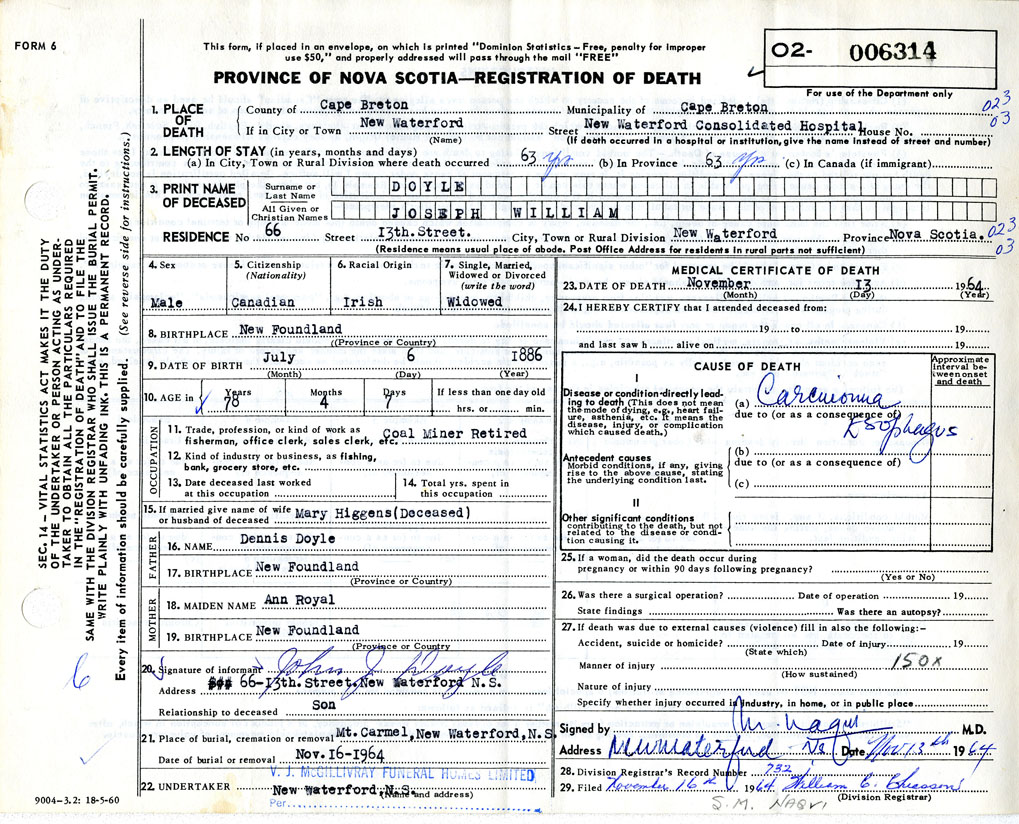 FORM 6
This form, if placed in an envelope, on which is printed "Dominion Statistics – Free, penalty for improper
use $50," and properly addressed will pass through the mail "FREE"
PROVINCE OF NOVA SCOTIA—REGISTRATION OF DEATH
02- 006314
For use of the Department only
SEC. 14 – VITAL STATISTICS ACT MAKES IT THE DUTY
OF THE UNDERTAKER OR PERSON ACTING AS UNDER-
TAKER TO OBTAIN ALL THE PARTICULARS REQUIRED
IN THE "REGISTRATION OF DEATH" AND TO FILE THE
SAME WITH THE DIVISION REGISTRAR WHO SHALL ISSUE THE BURIAL PERMIT.
WRITE PLAINLY WITH UNFADING INK. THIS IS A PERMANENT RECORD.
Every item of information should be carefully supplied. (See reverse side for instructions.)
1. PLACE OF DEATH
County of Cape Breton Municipality of Cape Breton 023
If in City or Town New Waterford Street New Waterford Consolidated Hospital House No. 03
(Name) (If death occurred in a hospital or institution, give the name instead of street and number)
2. LENGTH OF STAY (in years, months and days)
(a) In City, Town or Rural Division where death occurred 63 yrs (b) In Province 63 yrs (c) In Canada (if immigrant)
3. PRINT NAME OF DECEASED
Surname or Last Name DOYLE
All Given or Christian Names JOSEPH WILLIAM
RESIDENCE No 66 Street 13th.Street. City, Town or Rural Division New Waterford Province Nova Scotia. 023
(Residence means usual place of abode. Post Office Address for residents in rural parts not sufficient) 03
4. Sex
Male
5. Citizenship
(Nationality)
Canadian
6. Racial Origin
Irish
7. Single, Married,
Widowed or Divorced
(write the word)
Widowed
8. BIRTHPLACE New Foundland
(Province or Country)
9. DATE OF BIRTH July 6 1886
(Month) (Day) (Year)
10. AGE in Years Months Days If less than one day old
78 4 7 hrs. or min.
OCCUPATION
11. Trade, profession, or kind of work as
fisherman, office clerk, sales clerk, etc. Coal Miner Retired
12. Kind of industry or business, as fishing,
bank, grocery store, etc.
13. Date deceased last worked
at this occupation
14. Total yrs. spent in
this occupation
15. If married give name of wife
or husband of deceased Mary Higgens(Deceased)
FATHER
16. NAME Dennis Doyle
17. BIRTHPLACE New Foundland
(Province or Country)
MOTHER
18. MAIDEN NAME Ann Royal
19. BIRTHPLACE New Foundland
(Province or Country
20. Signature of informant John J Doyle
Address 66-13th.Street,New Waterford N.S.
Relationship to deceased Son
21. Place of burial, cremation or removal Mt.Carmel,New Waterford,N.S.
Date of burial or removal Nov.16-1964
V. J. McGILLIVRAY FUNERAL HOMES LIMITED
22. UNDERTAKER New Waterford,N.S.
(Name and address)
Per
9004-3.2: 18-5-60
MEDICAL CERTIFICATE OF DEATH
23. DATE OF DEATH November 13 1964
(Month) (Day) (Year)
24. I HEREBY CERTIFY that I attended deceased from:
19 to 19
and last saw h alive on 19
CAUSE OF DEATH
Approximate
interval be-
tween onset
and death
I
Disease or condition directly lead-
ing to death (This does not mean
the mode of dying, e.g., heart fail-
ure, asthenia, etc. It means the
disease, injury, or complication
which caused death.)
(a) Carcinoma
due to (or as a consequence of)
Esophagus
Antecedent causes
Morbid conditions, if any, giving
rise to the above cause, stating
the underlying condition last.
(b)
due to (or as a consequence of)
(c)
II
Other significant conditions
contributing to the death, but not
related to the disease or condi-
tion causing it.
25. If a woman, did the death occur during
pregnancy or within 90 days following pregnancy?
(Yes or No)
26. Was there a surgical operation? Date of operation 19
State findings Was there an autopsy?
27. If death was due to external causes (violence) fill in also the following:–
Accident, suicide or homicide? Date of injury 19
(State which)
Manner of injury 150X
(How sustained)
Nature of injury
Specify whether injury occurred in industry, in home, or in public place
Signed by M. Naqvi M.D.
Address New Waterford NS Date Nov 13th 1964
28. Division Registrar's Record Number 732
29. Filed November 16th 1964 William C.
(Division Registrar)
S.M. NAQVI